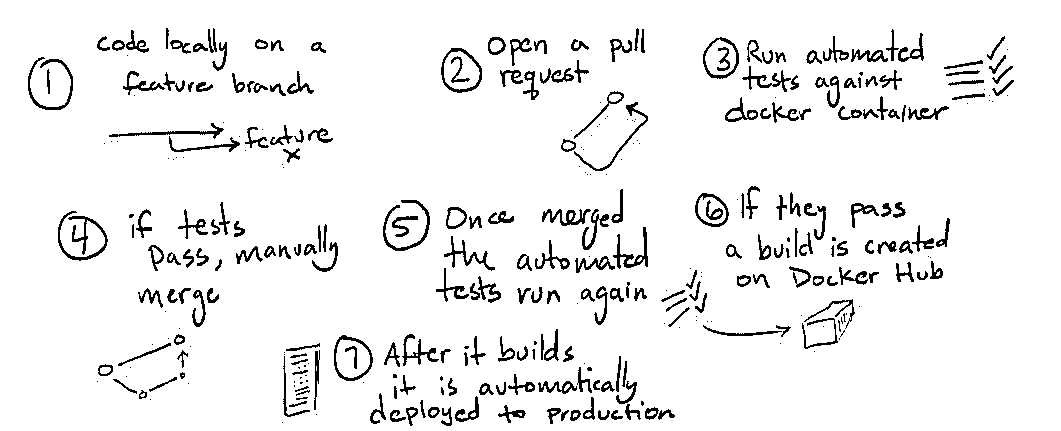 1 Code locally on a
feature branch
feature
x
2 Open a pull
request
3 Run automated
tests against
docker container
4 if tests
pass, manually
merge
5 Once merged
the automated
tests run again
6 If they pass
a build is created
on Docker Hub
7 After it builds
it is automatically
deployed to production